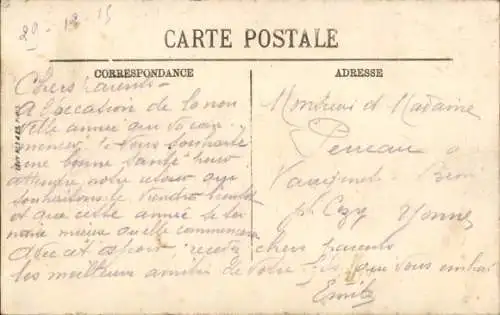 29-12-15
CARTE POSTALE
CORRESPONDANCE
ADRESSE
Chers parents
A l'occasion de la nou
velle année qui va com
mencer je vous souhaite
une bonne santé pour
attendre notre retour qui
souhaitons-le viendra bientôt
et que cette année se ter
mine mieux quelle commencera
avec cet espoir recevez chers parents
les meilleurs amitiés de votre fils qui vous embras
Emile
Monsieur et Madame
Perreau a
Yonne